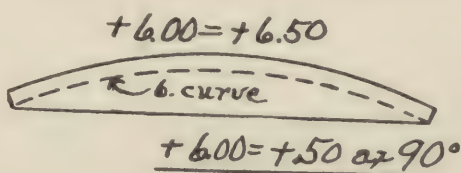 +6.00=+6.50
6. curve
+6.00=+.50 ax 90°